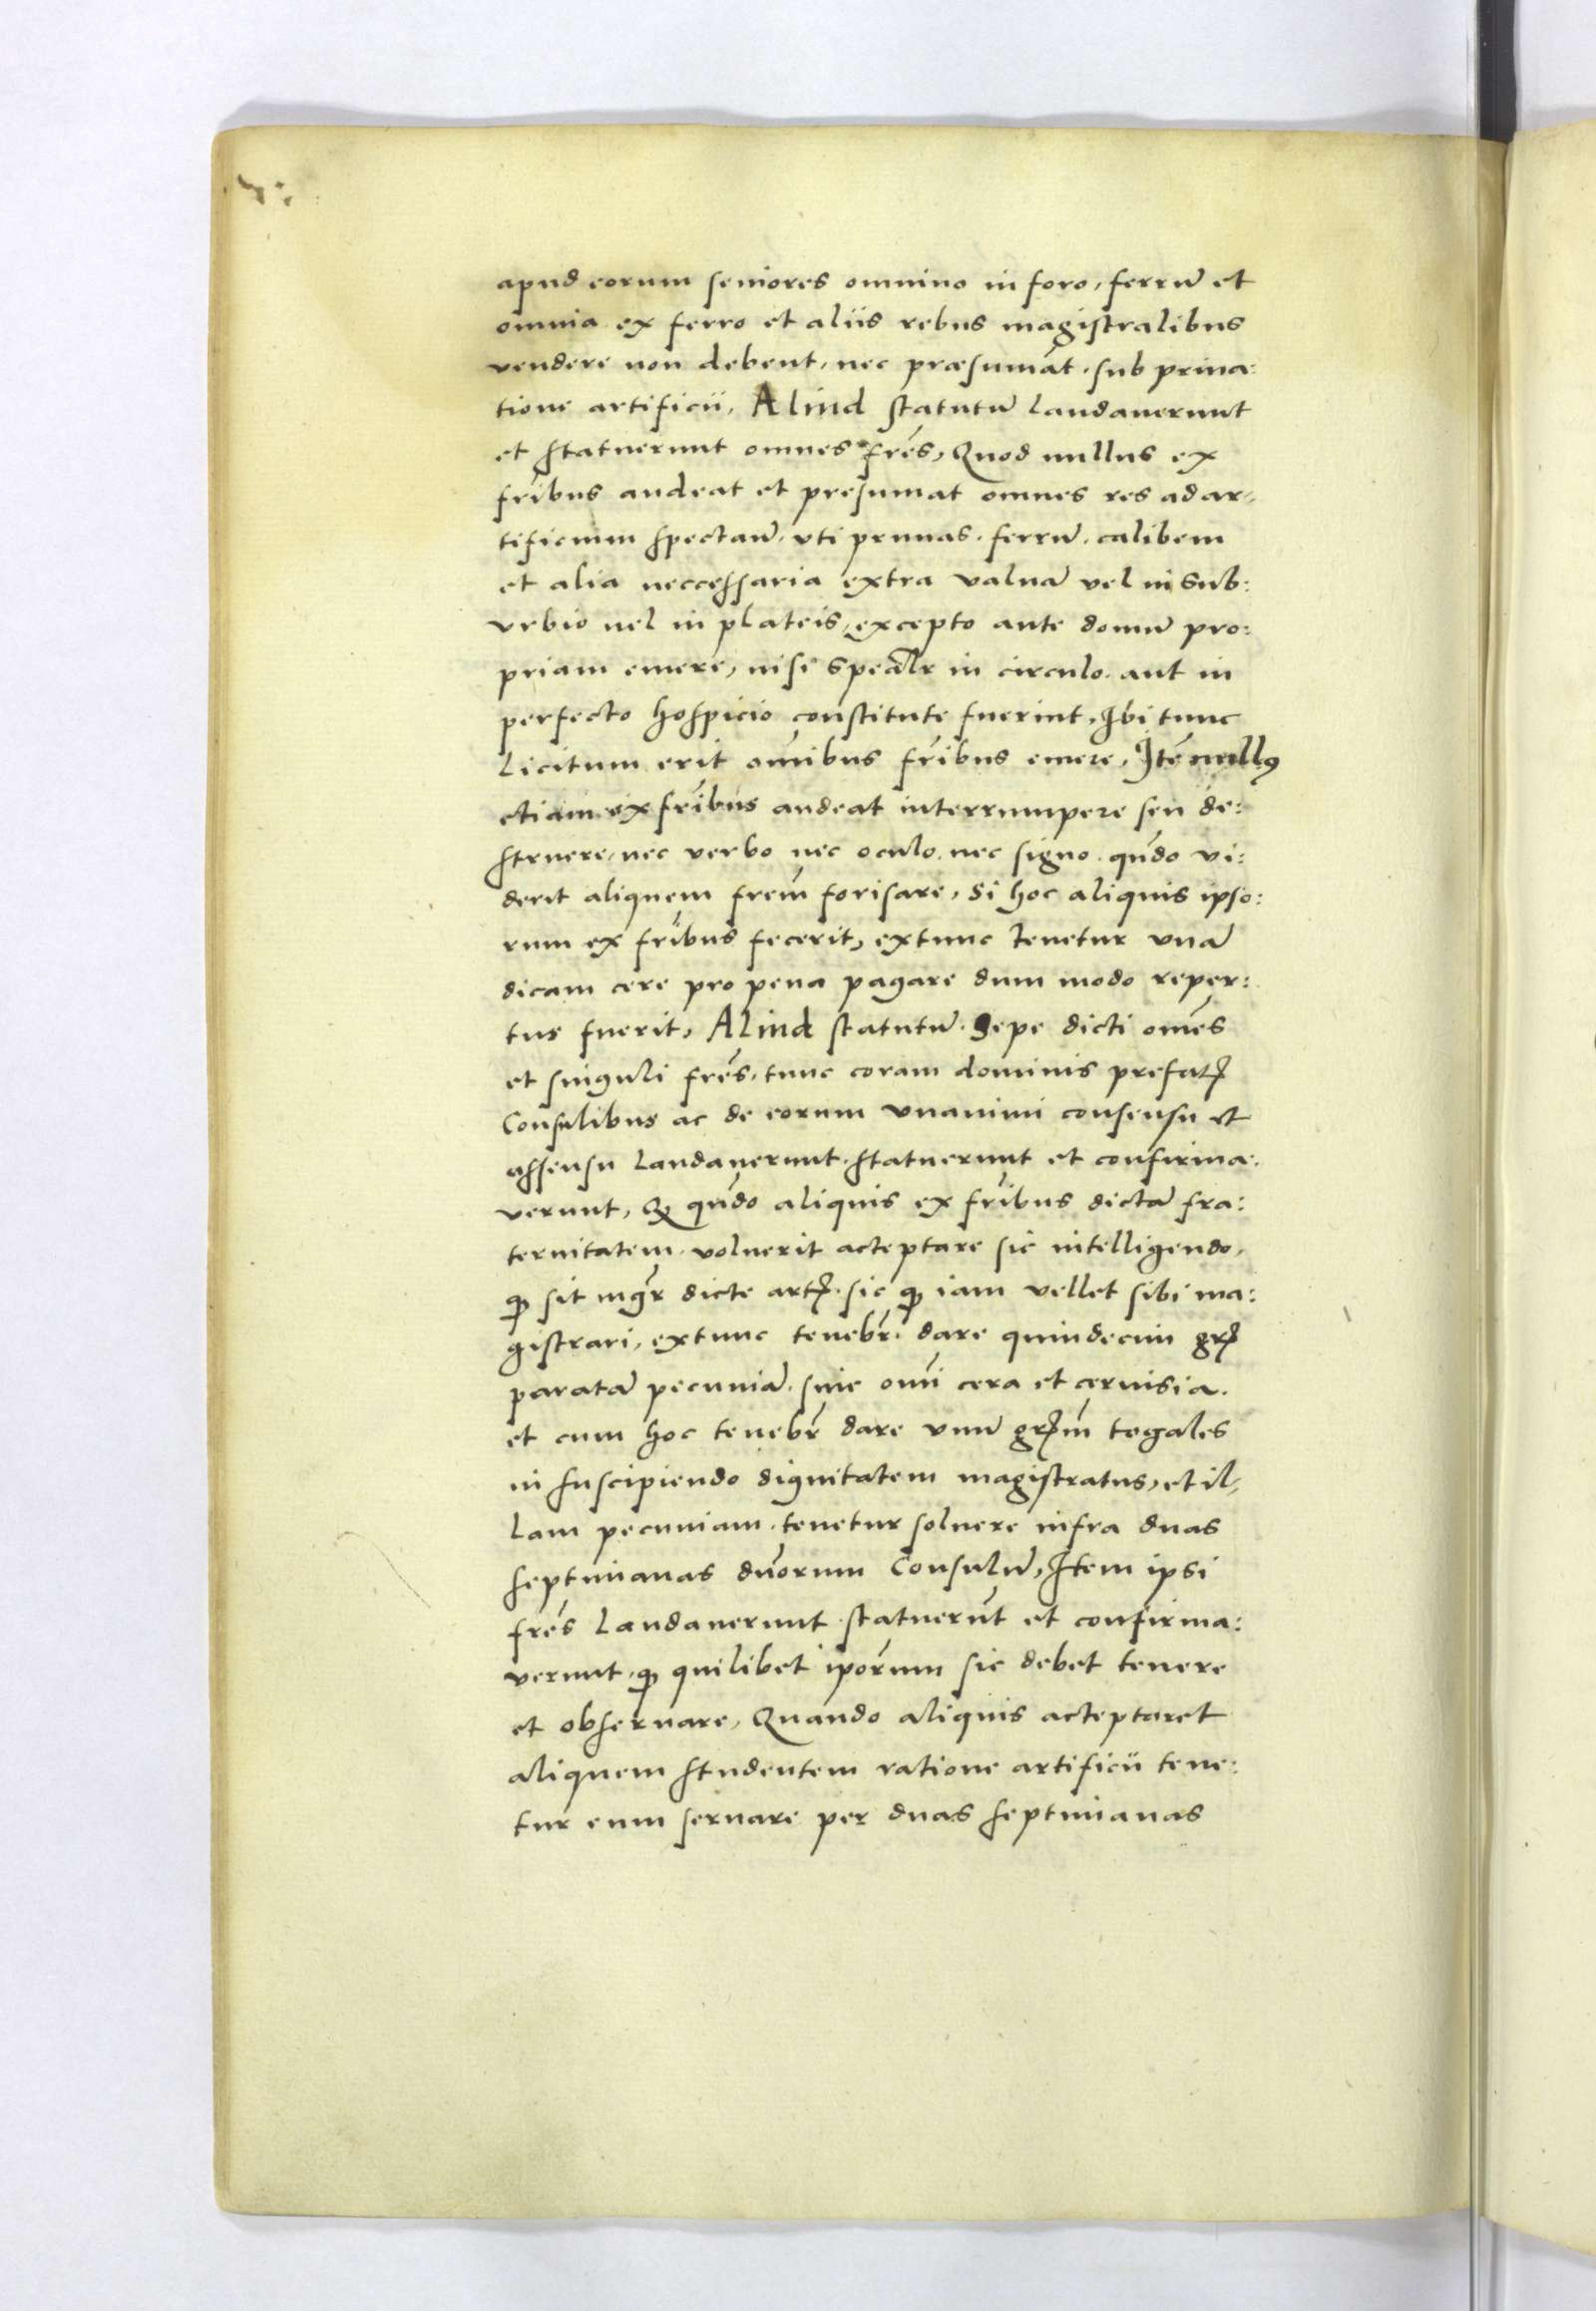 apud eorum seniores omnino in foro, ferrū et
omnia ex ferro et aliis rebus magistralibus
vendere non debent, nec præsumāt. sub priua:
tione artificii, Aliud statutū laudauerunt
et statuerunt omnes frēs, Quod nullus ex
frībus audeat et presumat omnes res ad ar,
tificium spectan̄. vti prunas. ferrū. calibem
et alia neccessaria extra valuā vel in sub:
vrbio uel in plateis, excepto ante domū pro:
priam emere, nisi speālr in circulo. aut in
perfecto hospicio constitute fuerint, Ibi tunc
Licitum erit om̄ibus frībus emere, Itē nullꝰ
etiam ex frībus audeat interrumpere seu de:
struere, nec verbo nec oculo. nec signo. qn̄do vi:
derit aliquem frēm forisare, Si hoc aliquis ipso:
rum ex frībus fecerit, extunc tenetur vnā
dicam cere pro pena pagare dum modo reper:
tus fuerit, Aliud statutū. Sepe dicti om̄es
et singuli frēs, tunc coram dominis prefatꝭ
Consulibus ac de eorum vnanimi consensu et
assensu laudauerunt. statuerunt et confirma:
verunt, Qꝫ qn̄do aliquis ex frībus dictā fra:
ternitatem. voluerit acteptare sic intelligendo,
qꝫ sit mgr̄ dicte artꝭ. sic qꝫ iam vellet sibi ma:
gistrari, extunc tenebr̄. dare quindecim grꝭ
paratā pecuniā. sine om̄i cera et ceruisia.
et cum hoc tenebr̄ dare vnū grꝭm̄ togales
in suscipiendo dignitatem magistratus, et il,
lam pecuniam. tenetur soluere infra duas
septimanas dn̄orum Consulū, Item ipsi
frēs laudauerunt. statuerūt et confirma:
verunt. qꝫ quilibet ip̄orum sic debet tenere
et obseruare, Quando aliquis acteptaret
aliquem studentem ratione artificii tene:
tur eum seruare per duas septimanas